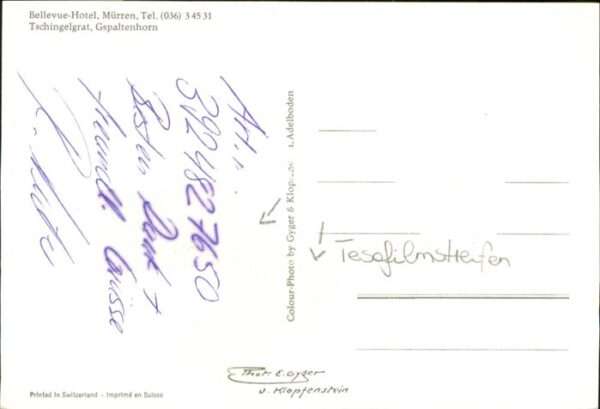 Bellevue-Hotel, Mürren, Tel. (036) 3 45 31
Tschingelgrat, Gspaltenhorn
Art.
392482 7650
Besten Dank +
freundl. Grüsse
Colour-Photo by Gyger & Klopfenstein, Adelboden
Tesafilmstreifen
Phot. E. Gyger
u. Klopfenstein
Printed in Switzerland - Imprimé en Suisse